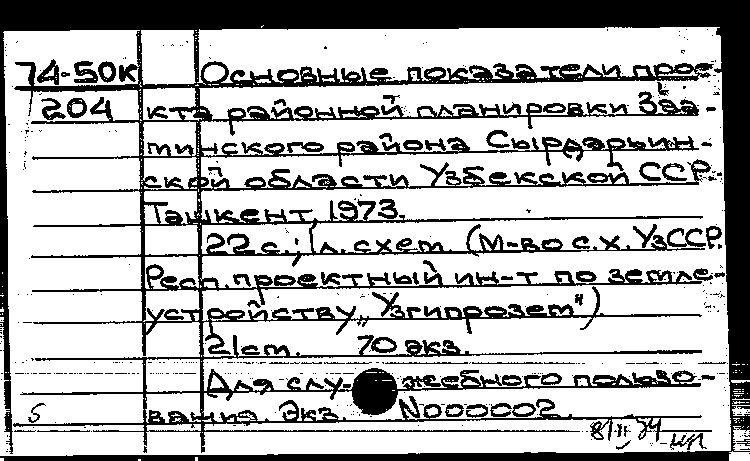 74-50к Основные показатели прое-
204 кта районной планировки Заа-
минского района Сырдарьин-
ской области Узбекской ССР.
Ташкент, 1973.
22 с.; 1 л. схем. (М-во с.х. УзССР.
Респ. проектный ин-т по земле-
устройству „Узгипрозем")
21 см. 70 экз.
Для слу- жебного пользо-
5 вания. Экз. N000002.